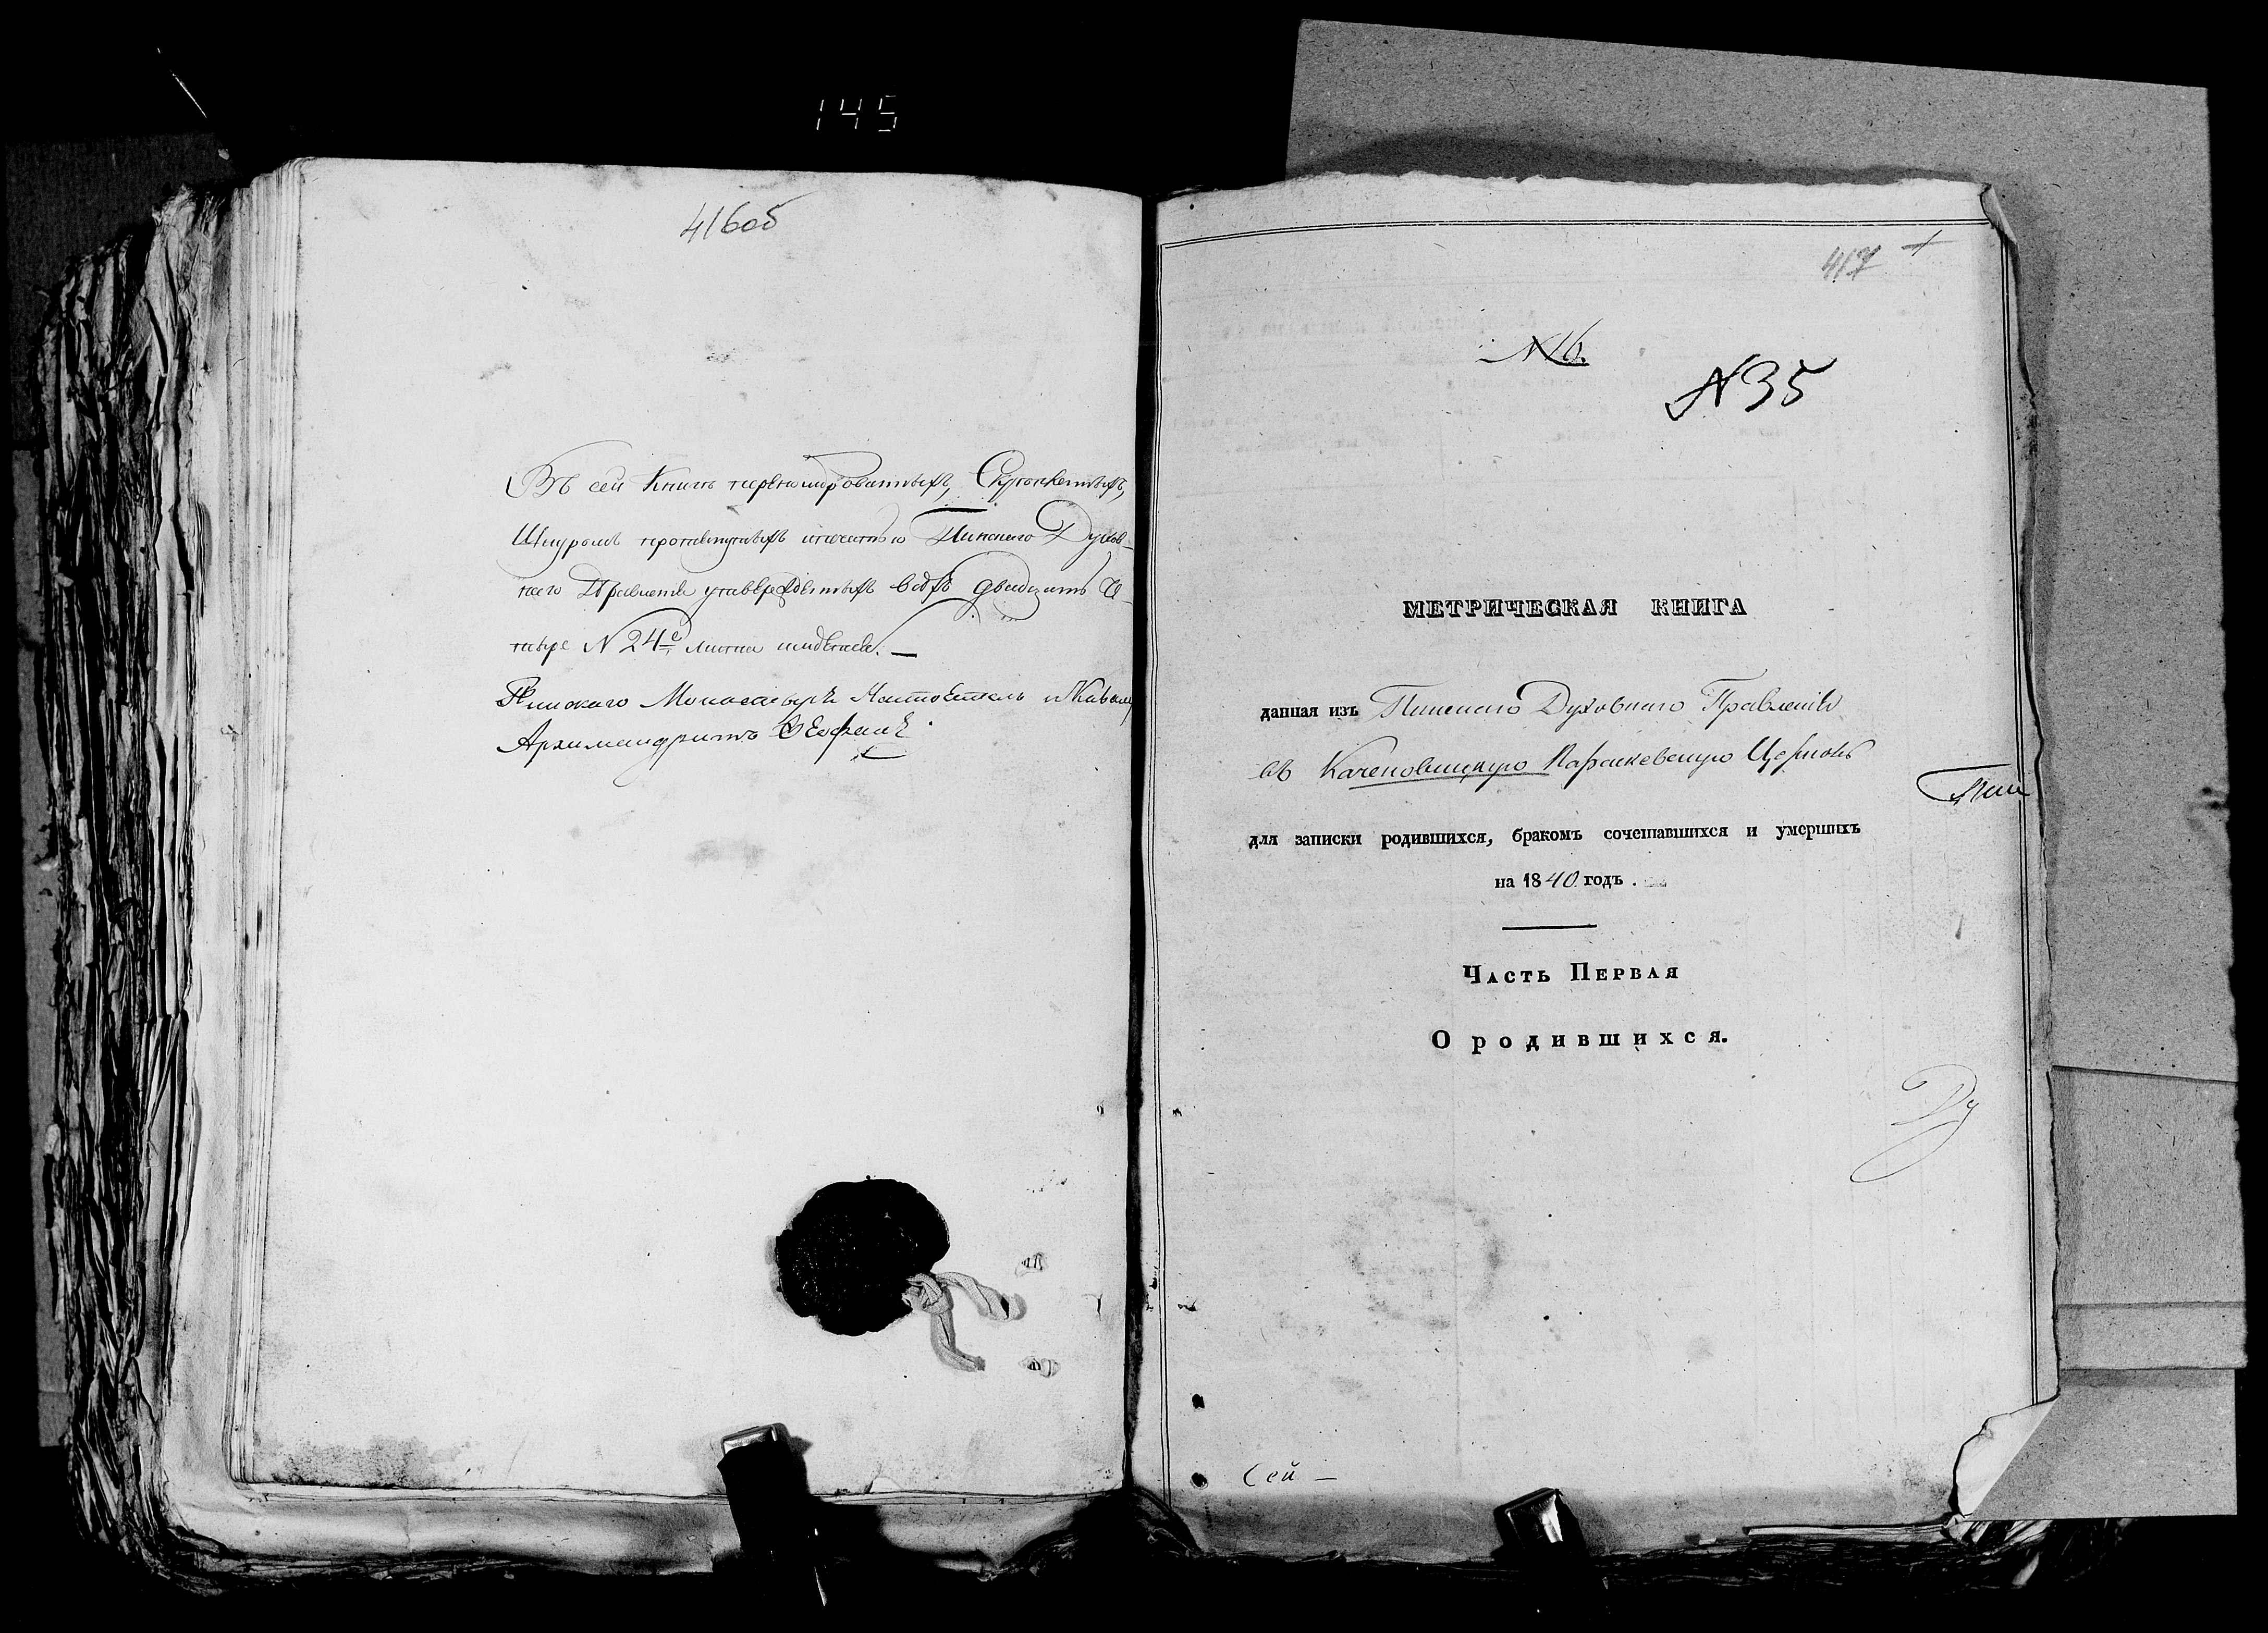 145
416об
Въ сей Книгѣ перенумерованныхъ, Скрѣпленныхъ,
Шнуромъ и печатью Пинскаго Духов-
наго Правленія утвержденныхъ всѣхъ двадцать че-
тыре N 24е листа
Пинскаго Монастыря Настоятель и Кавалер
Архимандритъ
417
N 16.
N 35
МЕТРИЧЕСКАЯ КНИГА
данная изъ Пинскаго Духовнаго Правленія
въ Каченовицкую Параскевскую Церковь
Пин
для записки родившихся, бракомъ сочетавшихся и умершихъ
на 1840 годъ.
Часть Первая
О родившихся.
Ду
Сей —